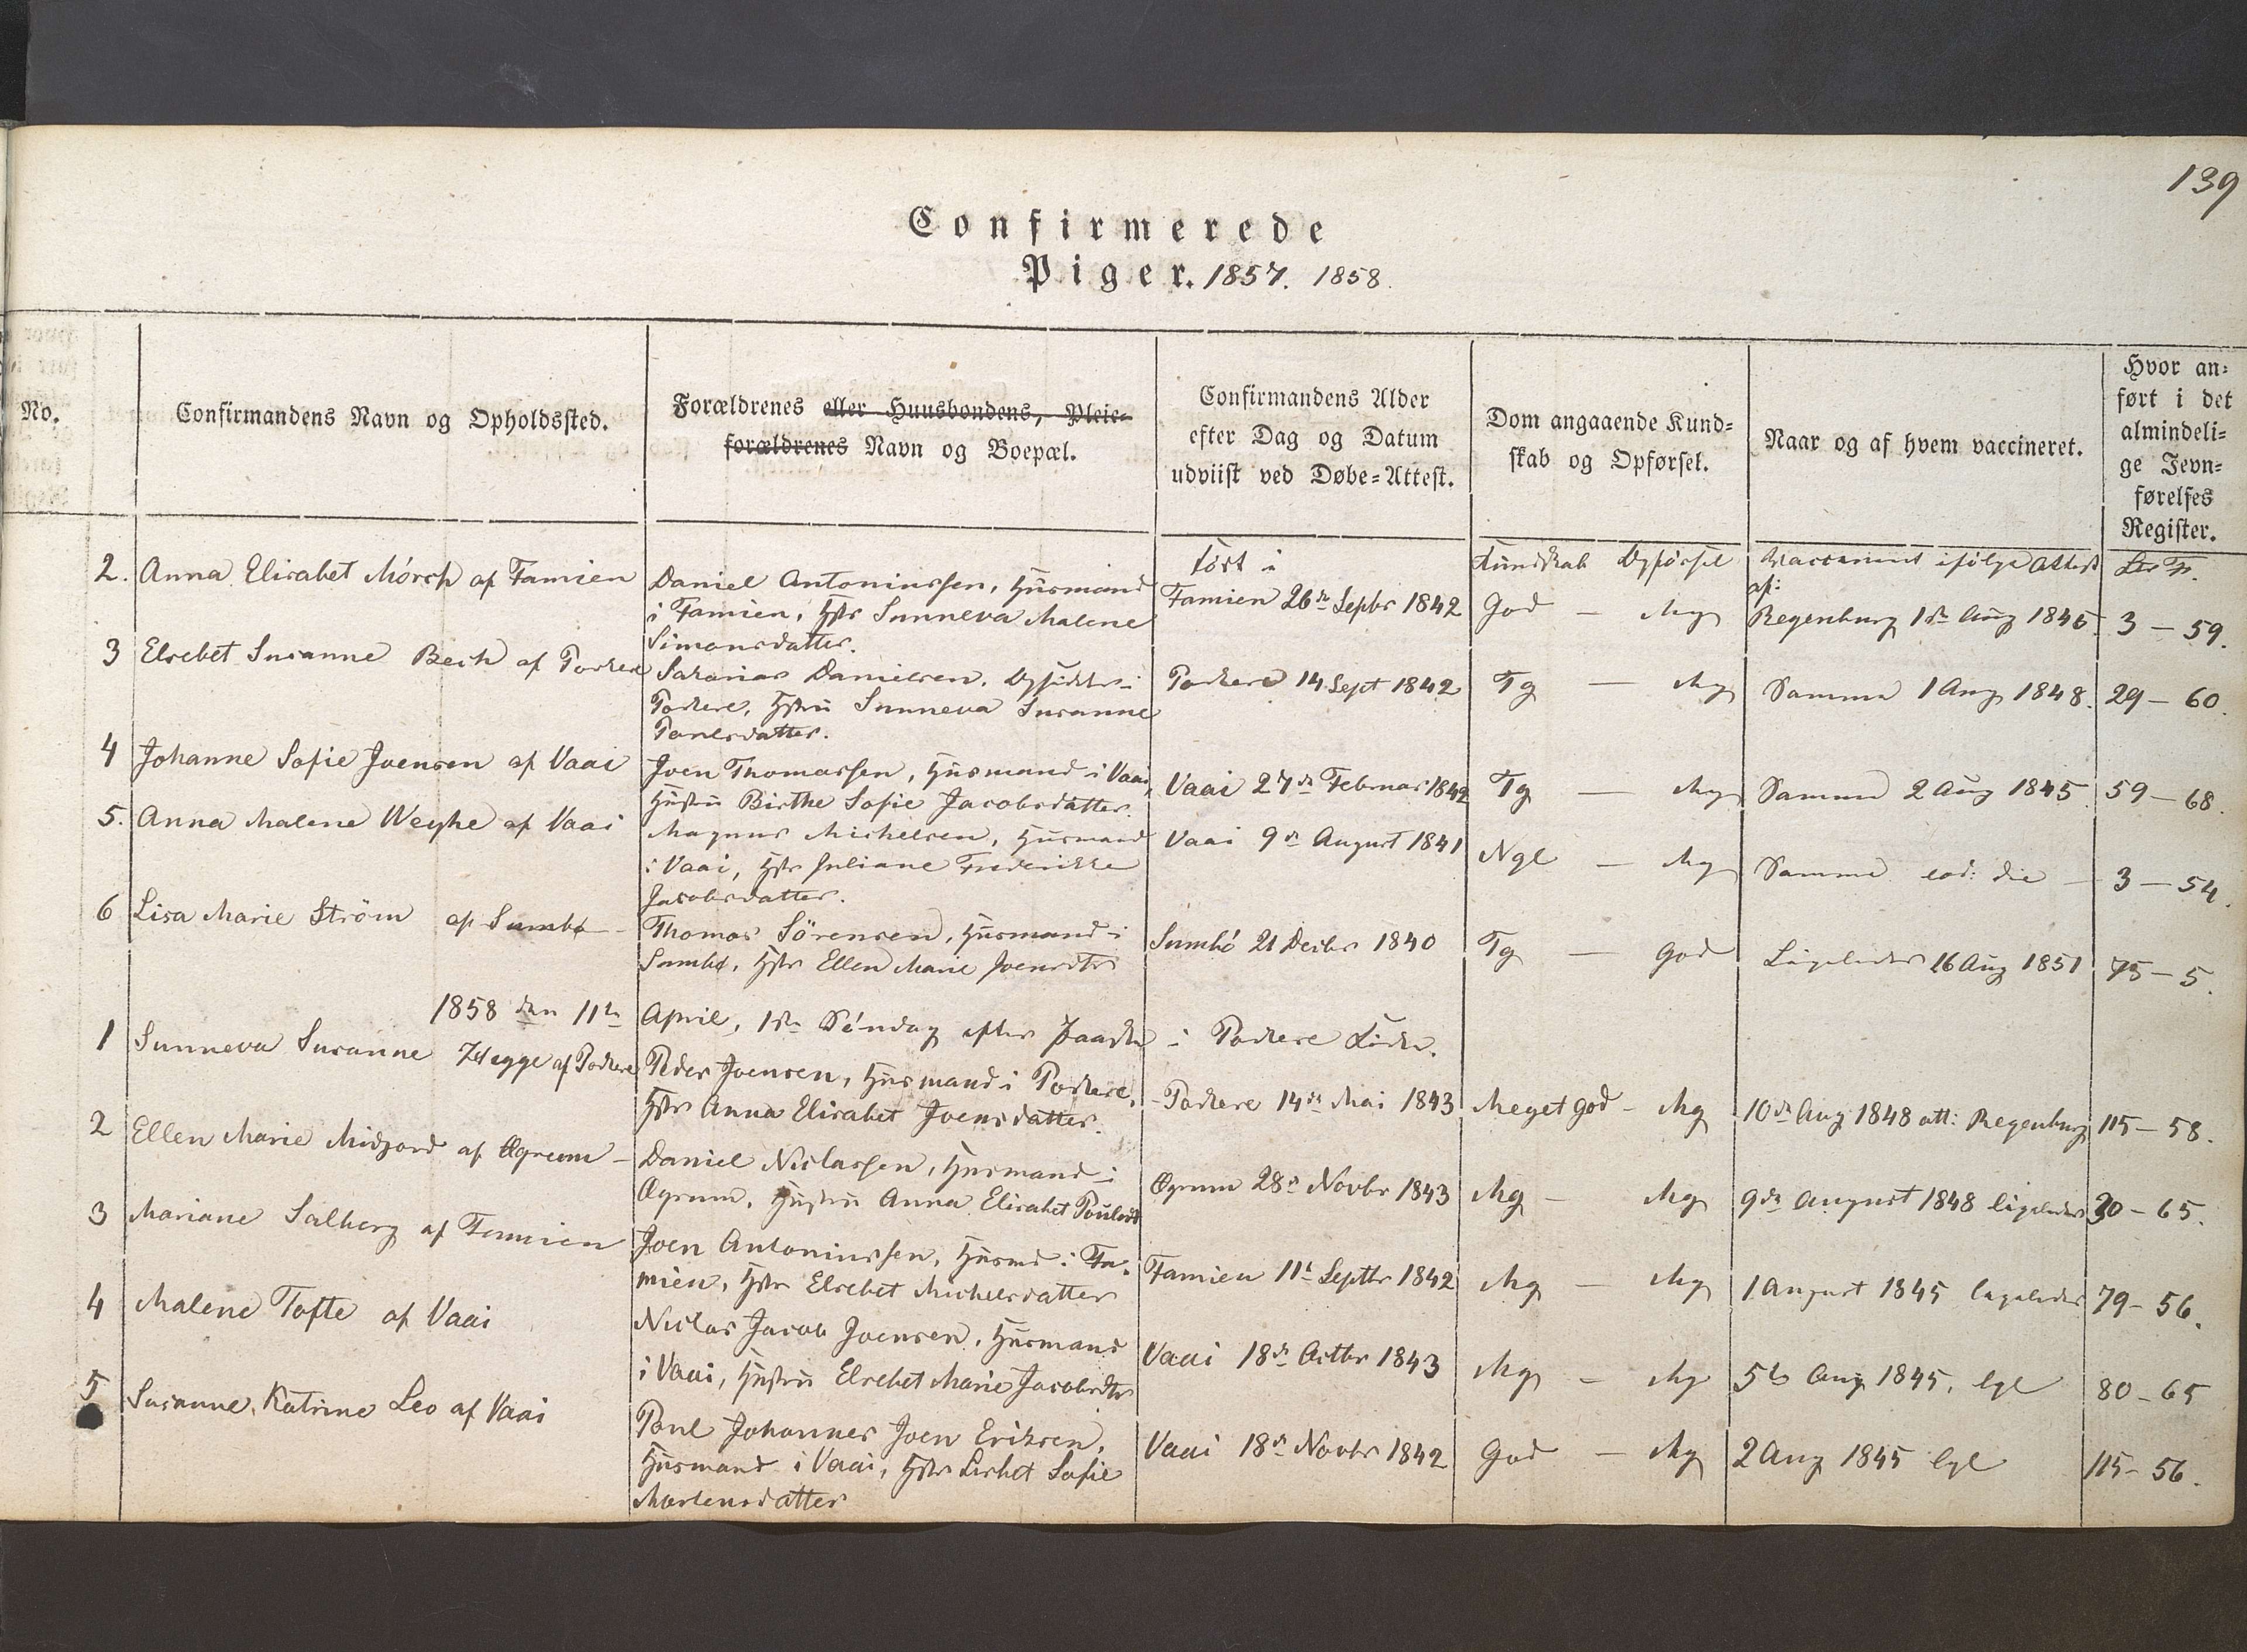 139
Confirmerede
Piger. 1857. 1858.
No.
Confirmandens Navn og Opholdssted.
Forældrenes eller Huusbondens, Pleie-
forældrenes Navn og Boepæl.
Confirmandens Alder
efter Dag og Datum
udviist ved Døbe-Attest.
Dom angaaende Kund-
skab og Opførsel.
Naar og af hvem vaccineret.
Hvor an-
ført i det
almindeli-
ge Jevn-
førelses
Register.
2. Anna Elisabet Mörch af Famien
Daniel Antoniussen, Huusmand
i Famien, Hstr Sunneva Malene
Simonsdatter.
født i
Famien 26de Septbr 1842
Kundskab Opførsel
God — Mg
Vaccineret ifølge Attest
af:
Regenburg 1ste Aug 1845
Ltr Fr.
3 — 59.
3 Elsebet Susanne Bech af Porkere
Sakarias Danielsen, Opsidder i
Porkere, Hstru Sunneva Susanne
Poulsdatter.
Porkere 14 Sept 1842
Tg — Mg
Samme 1 Aug 1848.
29 — 60.
4 Johanne Sofie Joensen af Vaai
Joen Thomassen, Huusmand i Vaai,
Hustru Birthe Sofie Jacobsdatter.
Vaai 27de Februar 1842
Tg — Mg
Samme 2 Aug 1845.
59 — 68.
5. Anna Malene Weyhe af Vaai
Magnus Michelsen, Huusmand
i Vaai, Hstr Juliane Frederikke
Jacobsdatter.
Vaai 9de August 1841
Ngl — Mg
Samme eod: die —
3 — 54.
6 Lisa Marie Ström af Sumbø
Thomas Sörensen, Huusmand i
Sumbø, Hstr Ellen Marie Joensdtr
Sumbö 21 Decbr 1840
Tg — God
Ligeledes 16 Aug 1851
75 — 5.
1858 den 11te April, 1ste Söndag efter Paaske i Porkere Kirke.
1 Sunneva Susanne Hegge af Porkere
Peder Joensen, Huusmand i Porkere,
Hstr Anna Elisabet Joensdatter.
Porkere 14de Mai 1843
Meget god — Mg
10de Aug 1848 att: Regenburg
115 — 58.
2 Ellen Marie Midjord af Øgrum —
Daniel Niclassen, Huusmand i
Øgrum, Hustru Anna Elisabet Poulsdtr
Øgrum 28de Novbr 1843
Mg — Mg
9de August 1848 ligeledes
30 — 65.
3 Mariane Salberg af Famien
Joen Antoniussen, Huusmd i Fa-
mien, Hstr Elsebet Michelsdatter
Famien 11te Septbr 1842
Mg — Mg
1 August 1845 ligeledes
79 — 56.
4 Malene Tofte af Vaai
Niclas Jacob Joensen, Huusmand
i Vaai, Hustru Elsebet Marie Jacobsdtr
Vaai 18de Octbr 1843
Mg — Mg
5te Aug 1845, lgl
80 — 65
5 Susanne Katrine Leo af Vaai
Poul Johannes Joen Eriksen,
Huusmand i Vaai, Hstr Lisbet Sofie
Mortensdatter
Vaai 18de Novbr 1842
God — Mg
2 Aug 1845 lgl
115 — 56.